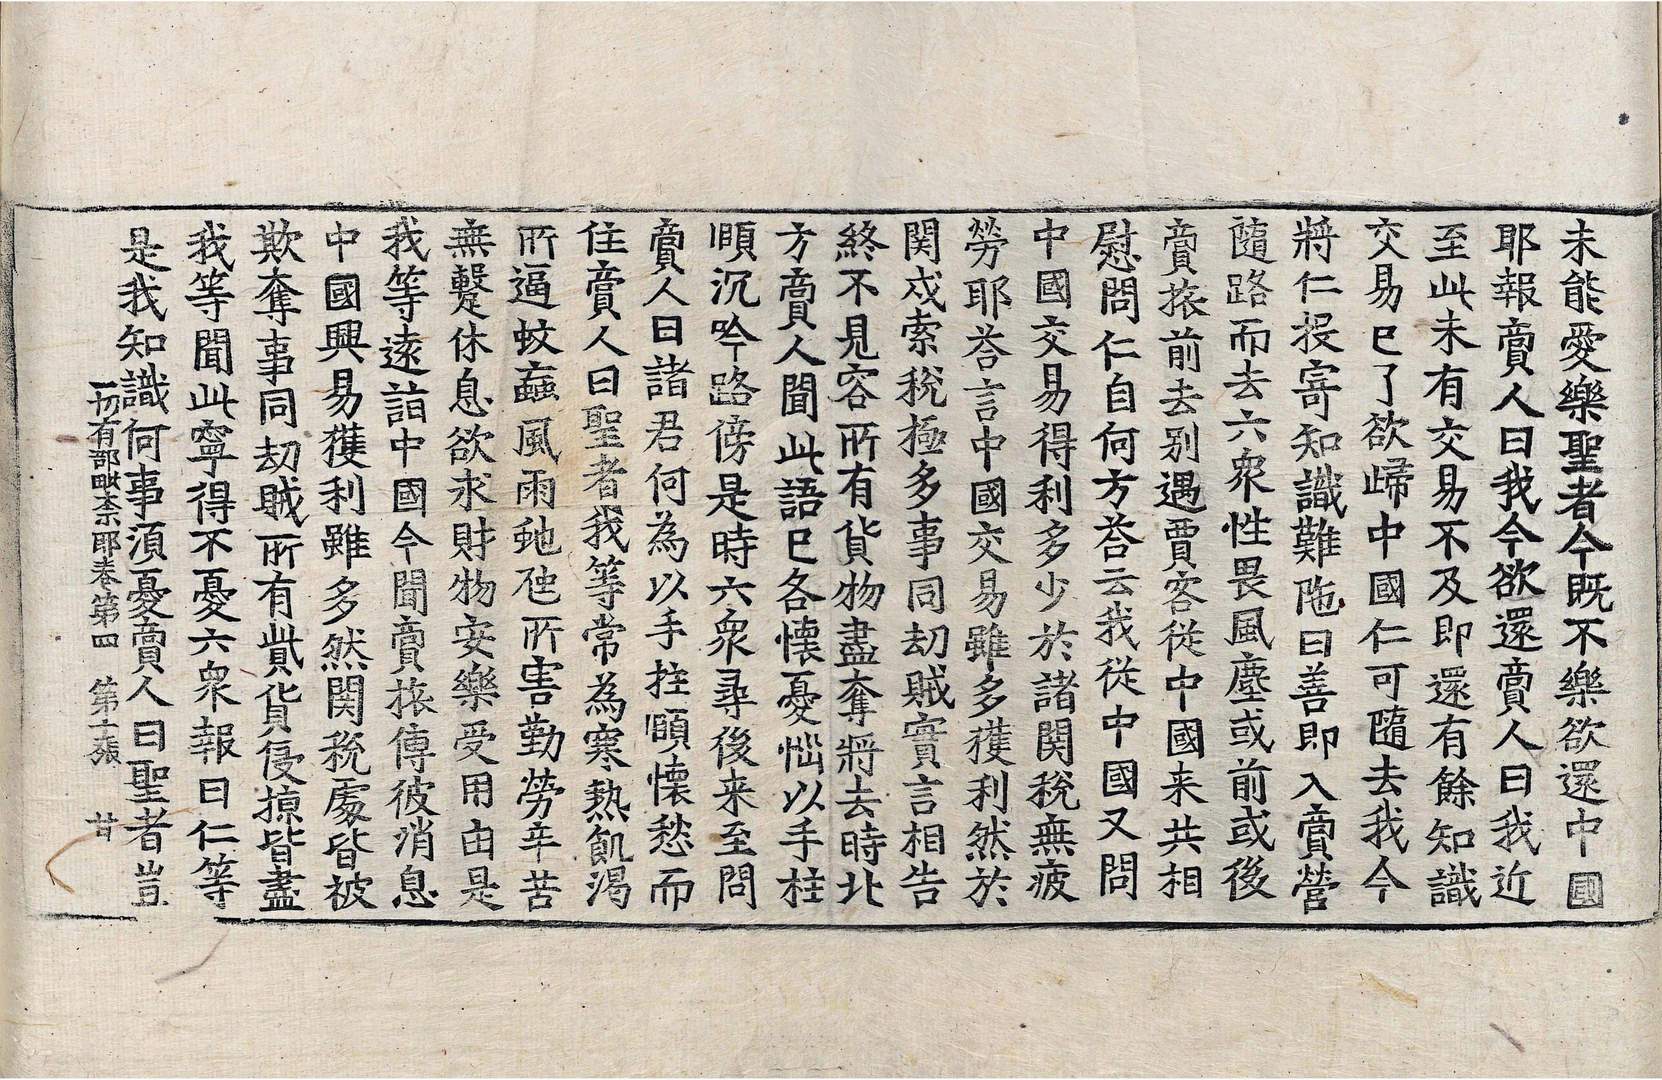 未能愛樂聖者今既不樂欲還中國
耶報賣人曰我今欲還賣人曰我近
至此未有交易不及即還有餘知識
交易已了欲歸中國仁可隨去我今
將仁投寄知識難陁曰善即入賣營
隨路而去六衆性畏風塵或前或後
賣旅前去别遇賈客從中國来共相
慰問仁自何方荅云我從中國又問
中國交易得利多少於諸関稅無疲
勞耶荅言中國交易雖多獲利然於
関戍索稅極多事同刼賊實言相告
終不見容所有貨物盡奪將去時北
方賣人聞此語已各懷憂惱以手柱
頤沉吟路傍是時六衆尋後来至問
賣人曰諸君何為以手拄頤懷愁而
住賣人曰聖者我等常為寒熱飢渴
所逼蚊䖟風雨虵虺所害勤勞辛苦
無蹔休息欲求財物安樂受用由是
我等遠詣中國今聞賣旅傳彼消息
中國興易獲利雖多然関稅處皆被
欺奪事同刼賊所有貲貨侵掠皆盡
我等聞此寧得不憂六衆報曰仁等
是我知識何事湏憂賣人曰聖者豈
一切有部毗柰耶卷第四 第十張 甘